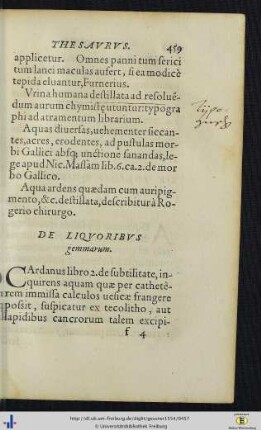 THESAVRVS. 459
applicetur. Omnes panni tum serici
tum lanei maculas aufert, si ea modicè
tepida eluantur, Furnerius.
Vrina humana destillata ad resoluē-
dum aurum chymistę utuntur: typogra
phi ad atramentum librarium.
Aquas diuersas, uehementer siccan-
tes, acres, erodentes, ad pustulas mor-
bi Gallici absq; unctione sanandas, le-
ge apud Nic. Massam lib. 6. ca. 2. de mor
bo Gallico.
Aqua ardens quædam cum auripig-
mento, &c. destillata, describitur à Ro-
gerio chirurgo.
DE LIQVORIBVS
gemmarum.
CArdanus libro 2. de subtilitate, in-
quirens aquam quæ per cathetê-
rem immissa calculos uesicæ frangere
possit, suspicatur ex tecolitho, aut
lapidibus cancrorum talem excipi-
f 4
© Universitätsbibliothek Freiburg